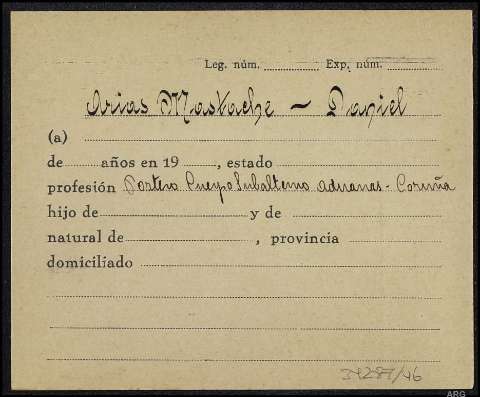 Leg. núm. Exp. núm.
Arias Mastache - Daniel
(a)
de años en 19 , estado
profesión Portero Cuerpo Subalterno Aduanas - Coruña
hijo de y de
natural de , provincia
domiciliado
ARG